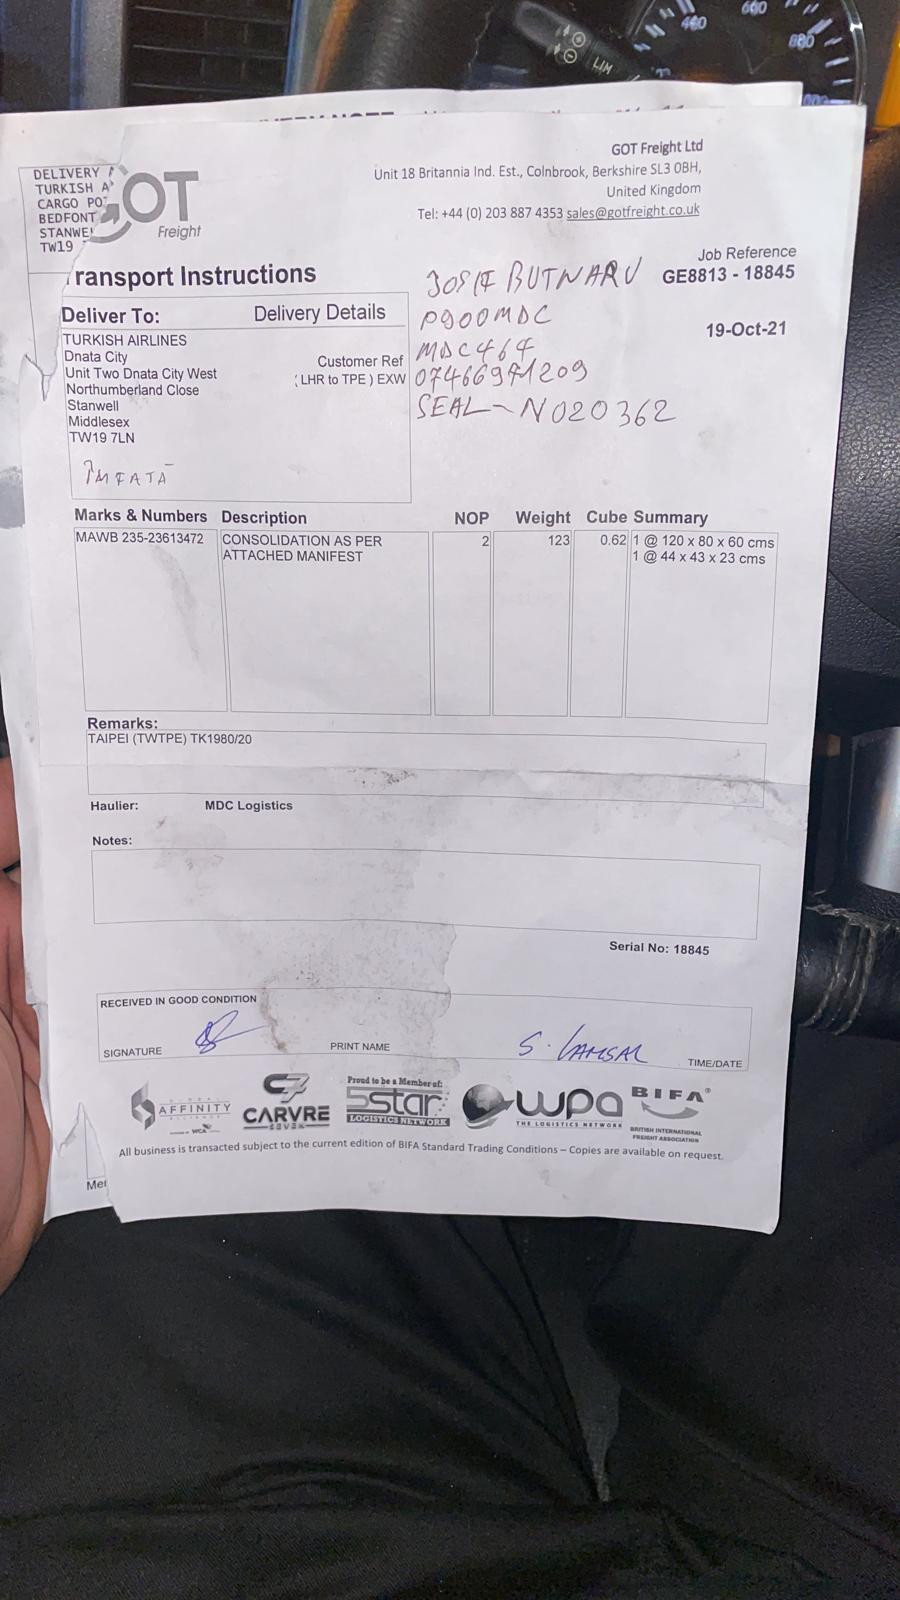 460
600
880
LIM
DELIVERY
TURKISH A
CARGO PO
BEDFONT
STANWE
TW19
GOT
Freight
GOT Freight Ltd
Unit 18 Britannia Ind. Est., Colnbrook, Berkshire SL3 0BH,
United Kingdom
Tel: +44 (0) 203 887 4353 sales@gotfreight.co.uk
Transport Instructions
Job Reference
GE8813 - 18845
19-Oct-21
BUTNARU
P900MDC
MDC464
07466971209
SEAL-N020362
Deliver To: Delivery Details
TURKISH AIRLINES
Dnata City
Unit Two Dnata City West
Northumberland Close
Stanwell
Middlesex
TW19 7LN
Customer Ref
( LHR to TPE ) EXW
Marks & Numbers Description NOP Weight Cube Summary
MAWB 235-23613472 CONSOLIDATION AS PER 2 123 0.62 1 @ 120 x 80 x 60 cms
ATTACHED MANIFEST 1 @ 44 x 43 x 23 cms
Remarks:
TAIPEI (TWTPE) TK1980/20
Haulier: MDC Logistics
Notes:
Serial No: 18845
RECEIVED IN GOOD CONDITION
SIGNATURE PRINT NAME S. LAMSAL TIME/DATE
AFFINITY
WCA
C7
CARVRE
SEVEN
Proud to be a Member of:
5star
LOGISTICS NETWORK
wpa
THE LOGISTICS NETWORK
BIFA®
BRITISH INTERNATIONAL
FREIGHT ASSOCIATION
All business is transacted subject to the current edition of BIFA Standard Trading Conditions – Copies are available on request.